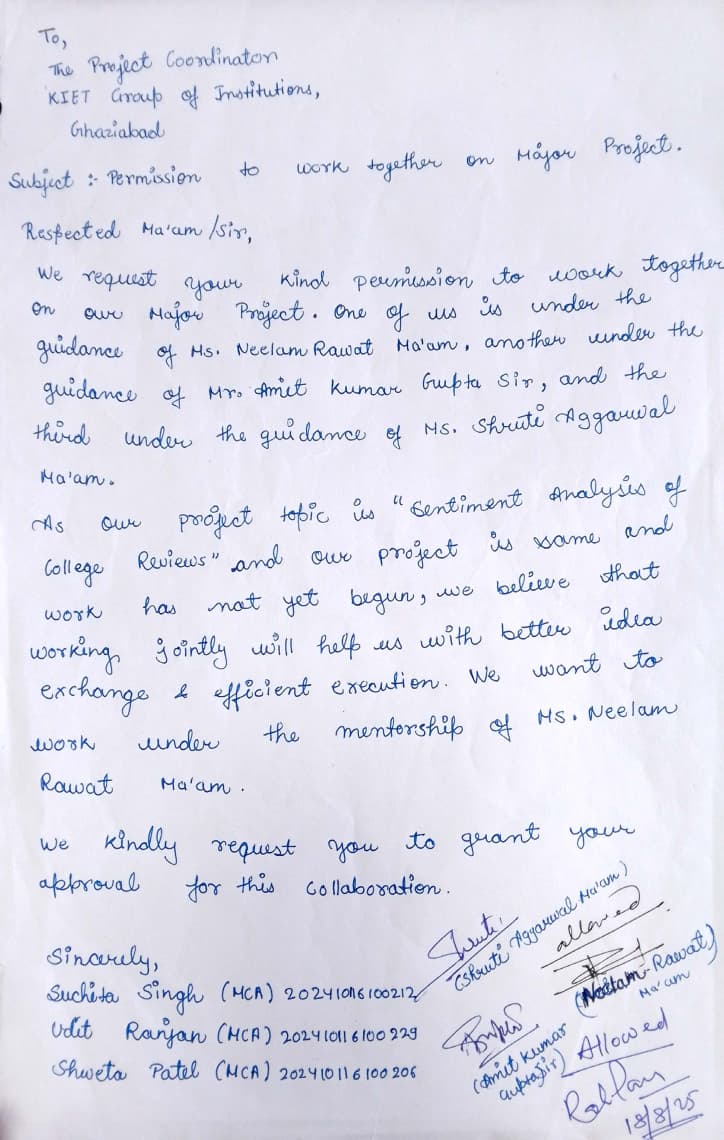 To,
The Project Coordinator
KIET Group of Institutions,
Ghaziabad
Subject :- Permission to work together on Major Project.
Respected Ma'am/Sir,
We request your kind permission to work together
on our Major Project. One of us is under the
guidance of Ms. Neelam Rawat Ma'am, another under the
guidance of Mr. Amit Kumar Gupta Sir, and the
third under the guidance of Ms. Shruti Aggarwal
Ma'am.
As our project topic is "Sentiment Analysis of
College Reviews" and our project is same and
work has not yet begun, we believe that
working jointly will help us with better idea
exchange & efficient execution. We want to
work under the mentorship of Ms. Neelam
Rawat Ma'am.
We kindly request you to grant your
approval for this collaboration.
Sincerely,
Suchita Singh (MCA) 202410116100212
Udit Ranjan (MCA) 202410116100229
Shweta Patel (MCA) 202410116100206
Shruti
(Shruti Aggarwal Ma'am)
allowed
(Neelam Rawat)
Ma'am
(Amit Kumar
Gupta Sir)
Allowed
18/8/25